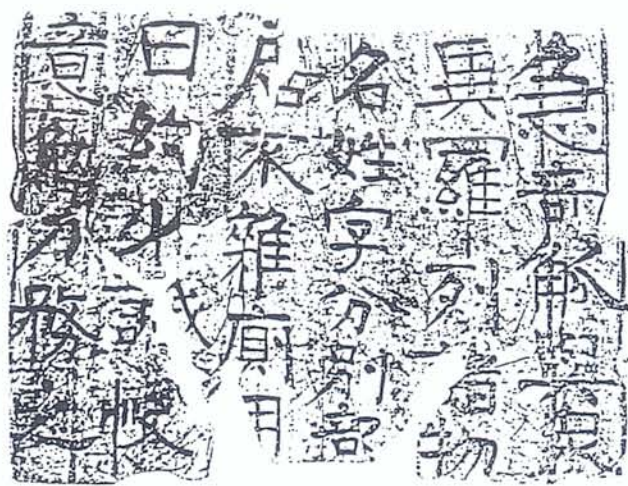 急奇觚與衆
異羅列諸物
名姓字分別部
居不雜廁用
日約少誠快
意勉力務之